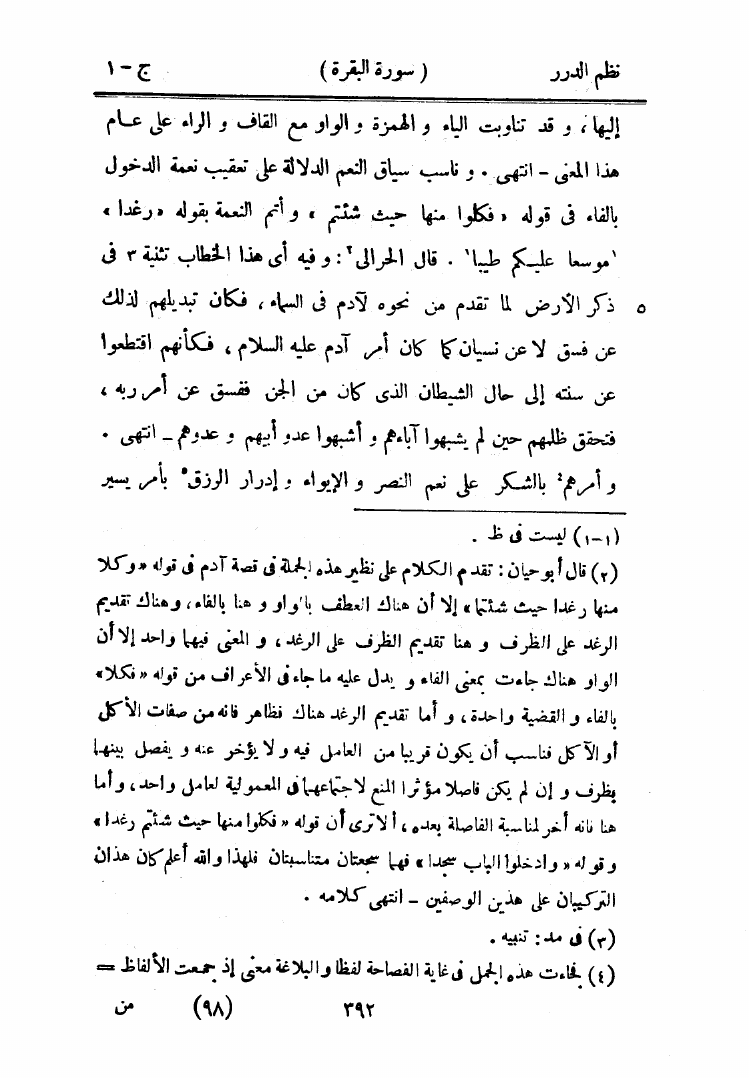 نظم الدرر ( سورة البقرة ) ج – ١
إليها، و قد تناوبت الياء و الهمزة و الواو مع القاف و الراء على عام
هذا المعنى – انتهى . و ناسب سياق النعم الدلالة على تعقيب نعمة الدخول
بالفاء فى قوله « فكلوا منها حيث شئتم » و أتم النعمة بقوله « رغدا »
'موسعا عليكم طيبا' . قال الحرالى٢: و فيه أى هذا الخطاب تثنية ٣ فى
ذكر الأرض لما تقدم من نحوه لآدم فى السماء ، فكان تبديلهم لذلك ٥
عن فسق لا عن نسيان كما كان أمر آدم عليه السلام ، فكأنهم اقتطعوا
عن سنته إلى حال الشيطان الذى كان من الجن ففسق عن أمر ربه ،
فتحقق ظلمهم حين لم يشبهوا آباءهم و أشبهوا عدو أبيهم و عدوهم – انتهى .
و أمرهم٤ بالشكر على نعم النصر و الإيواء و إدرار الرزق٥ بأمر يسير
(١-١) ليست فى ظ .
(٢) قال أبو حيان : تقدم الكلام على نظير هذه الجملة فى قصة آدم فى قوله « وكلا
منها رغدا حيث شئتما » إلا أن هناك العطف بالواو و هنا بالفاء ، وهناك تقديم
الرغد على الظرف و هنا تقديم الظرف على الرغد ، و المعنى فيهما واحد إلا أن
الواو هناك جاءت بمعنى الفاء و يدل عليه ما جاء فى الأعراف من قوله « فكلا »
بالفاء و القضية واحدة ، و أما تقديم الرغد هناك فظاهر فانه من صفات الأكل
أو الآكل فناسب أن يكون قريبا من العامل فيه و لا يؤخر عنه و يفصل بينهما
بظرف و إن لم يكن فاصلا مؤثرا المنع لاجتماعهما فى المعمولية لعامل واحد ، و أما
هنا فانه أخر لمناسبة الفاصلة بعده ، ألا ترى أن قوله « فكلوا منها حيث شئتم رغدا »
و قوله « وادخلوا الباب سجدا » فهما سجعتان متناسبتان فلهذا والله أعلم كان هذان
التركيبان على هذين الوصفين – انتهى كلامه .
(٣) فى مد : تنبيه .
(٤) فجاءت هذه الجمل فى غاية الفصاحة لفظا و البلاغة معنى إذ جمعت الألفاظ =
٣٩٢ (٩٨) من